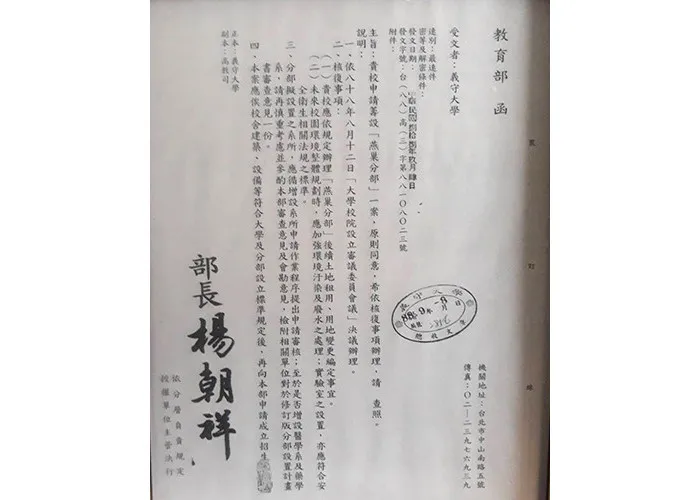 教育部 函
受文者：義守大學
機關地址：台北市中山南路五號
傳真：〇二—二三九七六九三九
速別：最速件
密等及解密條件：
發文日期：中華民國捌拾捌年玖月肆日
發文字號：台（八八）高（三）字第八八一〇八〇二三號
附件：
主旨：貴校申請籌設「燕巢分部」一案，原則同意，希依核復事項辦理，請 查照。
說明：
一、依八十八年八月十二日「大學校院設立審議委員會議」決議辦理。
二、核復事項：
（一）貴校應依規定辦理「燕巢分部」後續土地租用、用地變更編定事宜。
（二）未來校園環境整體規劃時，應加強環境汙染及廢水之處理；實驗室之設置，亦應符合安
全衛生相關法規之標準。
三、分部擬設置之系所，應循增設系所申請作業程序提出申請審核；至於是否增設醫學系及藥學
系，請再慎重考慮並參酌本部審查意見及會勘意見，檢附相關單位對於修訂版分部設置計畫
書審查意見一份。
四、本案應俟校舍建築、設備等符合大學及分部設立標準規定後，再向本部申請成立招生
正本：義守大學
副本：高教司
部長 楊朝祥
依分層負責規定
授權單位主管決行
義守大學
88.9.-8
年 月 日
總收文章